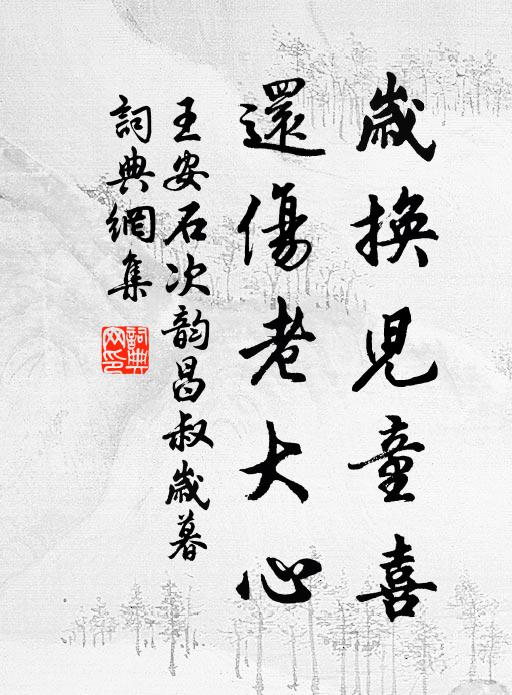 歲換兒童喜
還傷老大心
王安石次韵昌叔歲暮
詞典網集
詞典網印